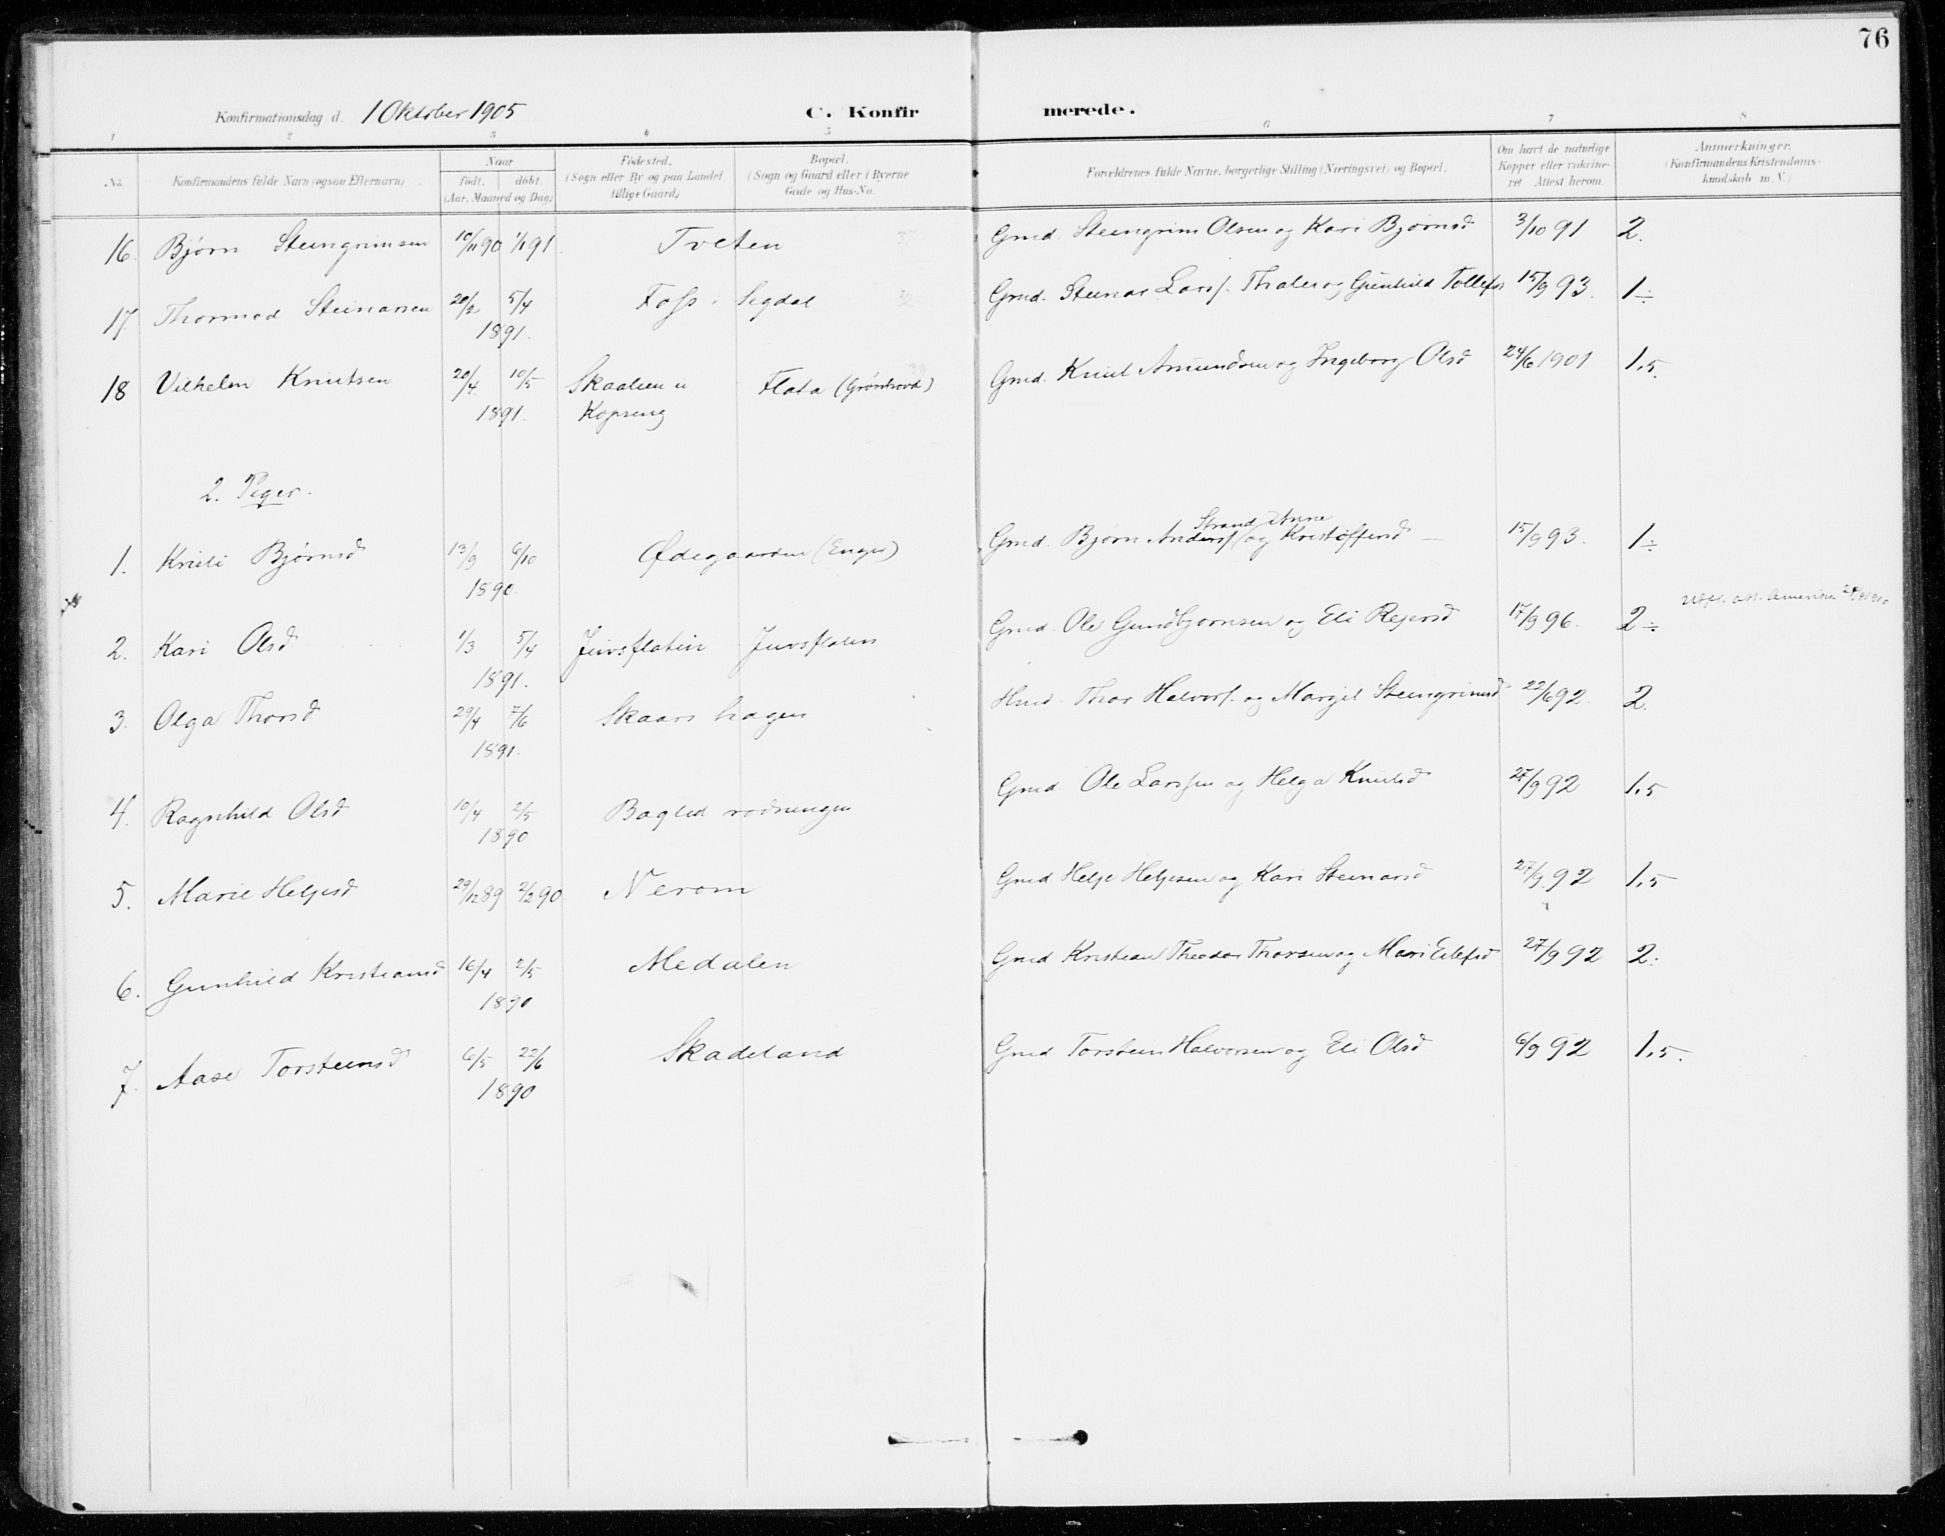 76
Konfirmationsdag d. 1 Oktober 1905 C. Konfirmerede.
1 2 3 4 5 6 7 8
No. Konfirmandens fulde Navn (ogsaa Efternavn) Naar født. døbt. (Aar, Maaned og Dag) Fødested. (Sogn eller By og paa Landet tillige Gaard) Bopæl. (Sogn og Gaard eller i Byerne Gade og Hus-No. Forældrenes fulde Navne, borgerlige Stilling (Næringsvei) og Bopæl. Om havt de naturlige Kopper eller vaccineret. Attest herom. Anmærkninger. (Konfirmandens Kristendomskundskab m. V.)
16. Bjørn Steingrimsen 10/11 90 1/1 91. Tveten Gmd. Steingrim Olsen og Kari Bjørnsd 3/10 91 2.
17. Thormod Steinarsen 20/2 5/4 1891. Foss. Sigdal Gmd. Steinar Larsf. Thalerog Gunhild Tollefsd 15/9 93. 1÷
18 Vilhelm Knutsen 20/4. 10/5 1891. Skaalien u Kopseng Flata (Grønhovd) Gmd. Knut Amundsen og Ingeborg Olsd 24/6 1901 1.5.
2. Piger.
1. Kristi Bjørnsd 13/9 6/10 1890. Ødegaarden (Enger) Gmd. Bjørn Andersf Strand og Anne Kristoffersd 15/9 93. 1÷
2. Kari Olsd 1/3 5/4 1891. Juvsflatin Juvsflaten Gmd. Ole Gundbjørnsen og Eli Rejersd 17/9 96. 2÷ Amerika
3. Olga Thorsd 29/4 7/6 1891. Skaars hagen Hmd. Thor Halvorsf. og Margit Steingrimsd 22/6 92. 2.
4. Ragnhild Olsd 10/4 2/5 1890 Baglid rødningen Gmd Ole Larssen og Helga Knutsd 27/9 92 1.5
5. Marie Helgesd 29/12 89 2/2 90. Nerom Gmd Helge Helgesen og Kari Steinarsd 27/9 92 1.5
6. Gunhild Kristiansd 16/4 2/5 1890 Medalen Gmd Kristian Theodor Thorsen og Mari Eilefsd 27/9 92 2.
7. Aase Torsteinsd 6/5 22/6 1890 Skadeland Gmd Torstein Halvorsen og Eli Olsd 6/9 92 1.5.